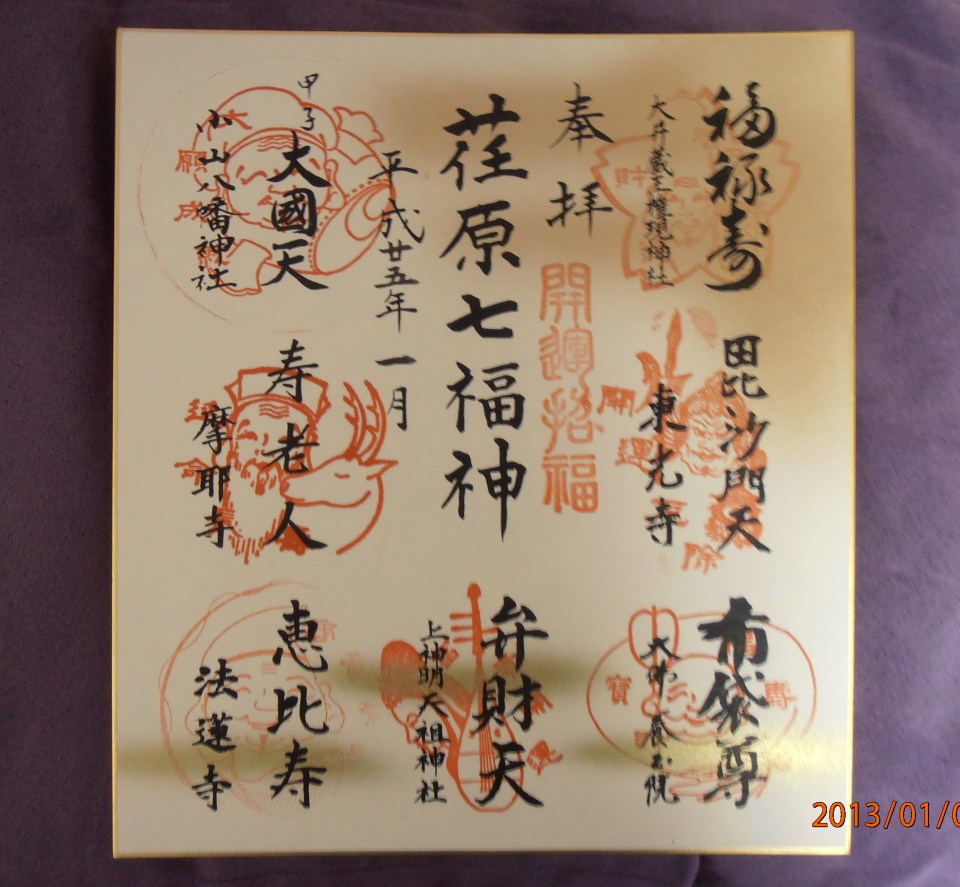 福禄寿
大井蔵王権現神社
財
毘沙門天
東光寺
開
運
除
布袋尊
大佛
養玉院
寶
壽
奉拝
開運招福
荏原七福神
弁財天
上神明天祖神社
平成廿五年一月
甲子
大國天
小山八幡神社
大
願
成
寿老人
摩耶寺
恵比寿
法蓮寺
2013/01/0